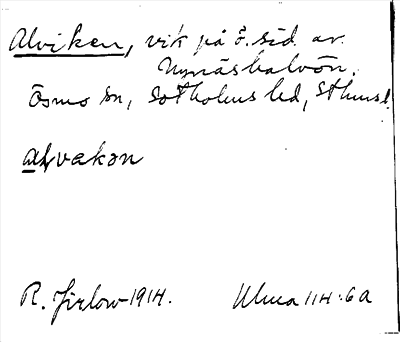 Alviken, vik på ö. sid. av
Nynäshalvön.
Ösmo sn, Sotholms hd, Sthmsl.
alvekən
R. Jirlow 1914.
Ulma 114:6a